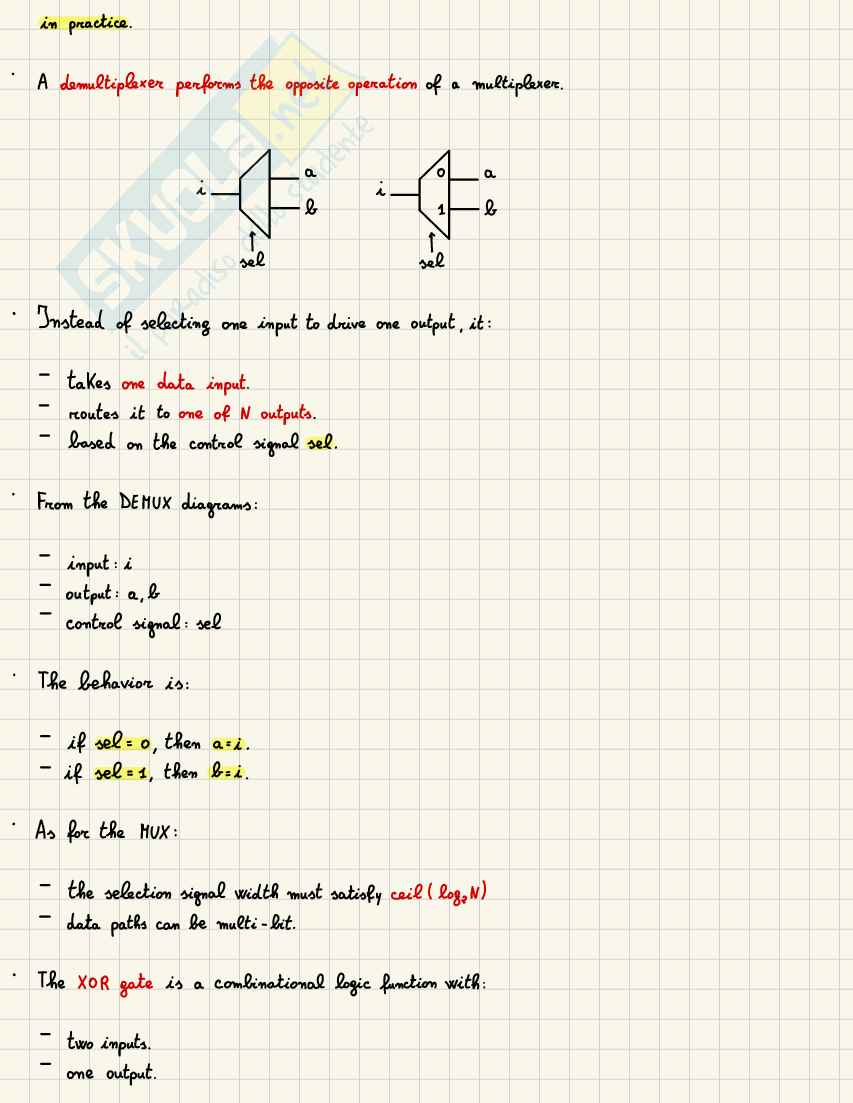 in practice.
· A demultiplexer performs the opposite operation of a multiplexer.
SKUOLA.net
il paradiso dello studente
i a b sel
i 0 1 a b sel
· Instead of selecting one input to drive one output, it:
- takes one data input.
- routes it to one of N outputs.
- based on the control signal sel.
· From the DEMUX diagrams:
- input: i
- output: a, b
- control signal: sel
· The behavior is:
- if sel = 0, then a = i.
- if sel = 1, then b = i.
· As for the MUX:
- the selection signal width must satisfy ceil (log₂N)
- data paths can be multi-bit.
· The XOR gate is a combinational logic function with:
- two inputs.
- one output.